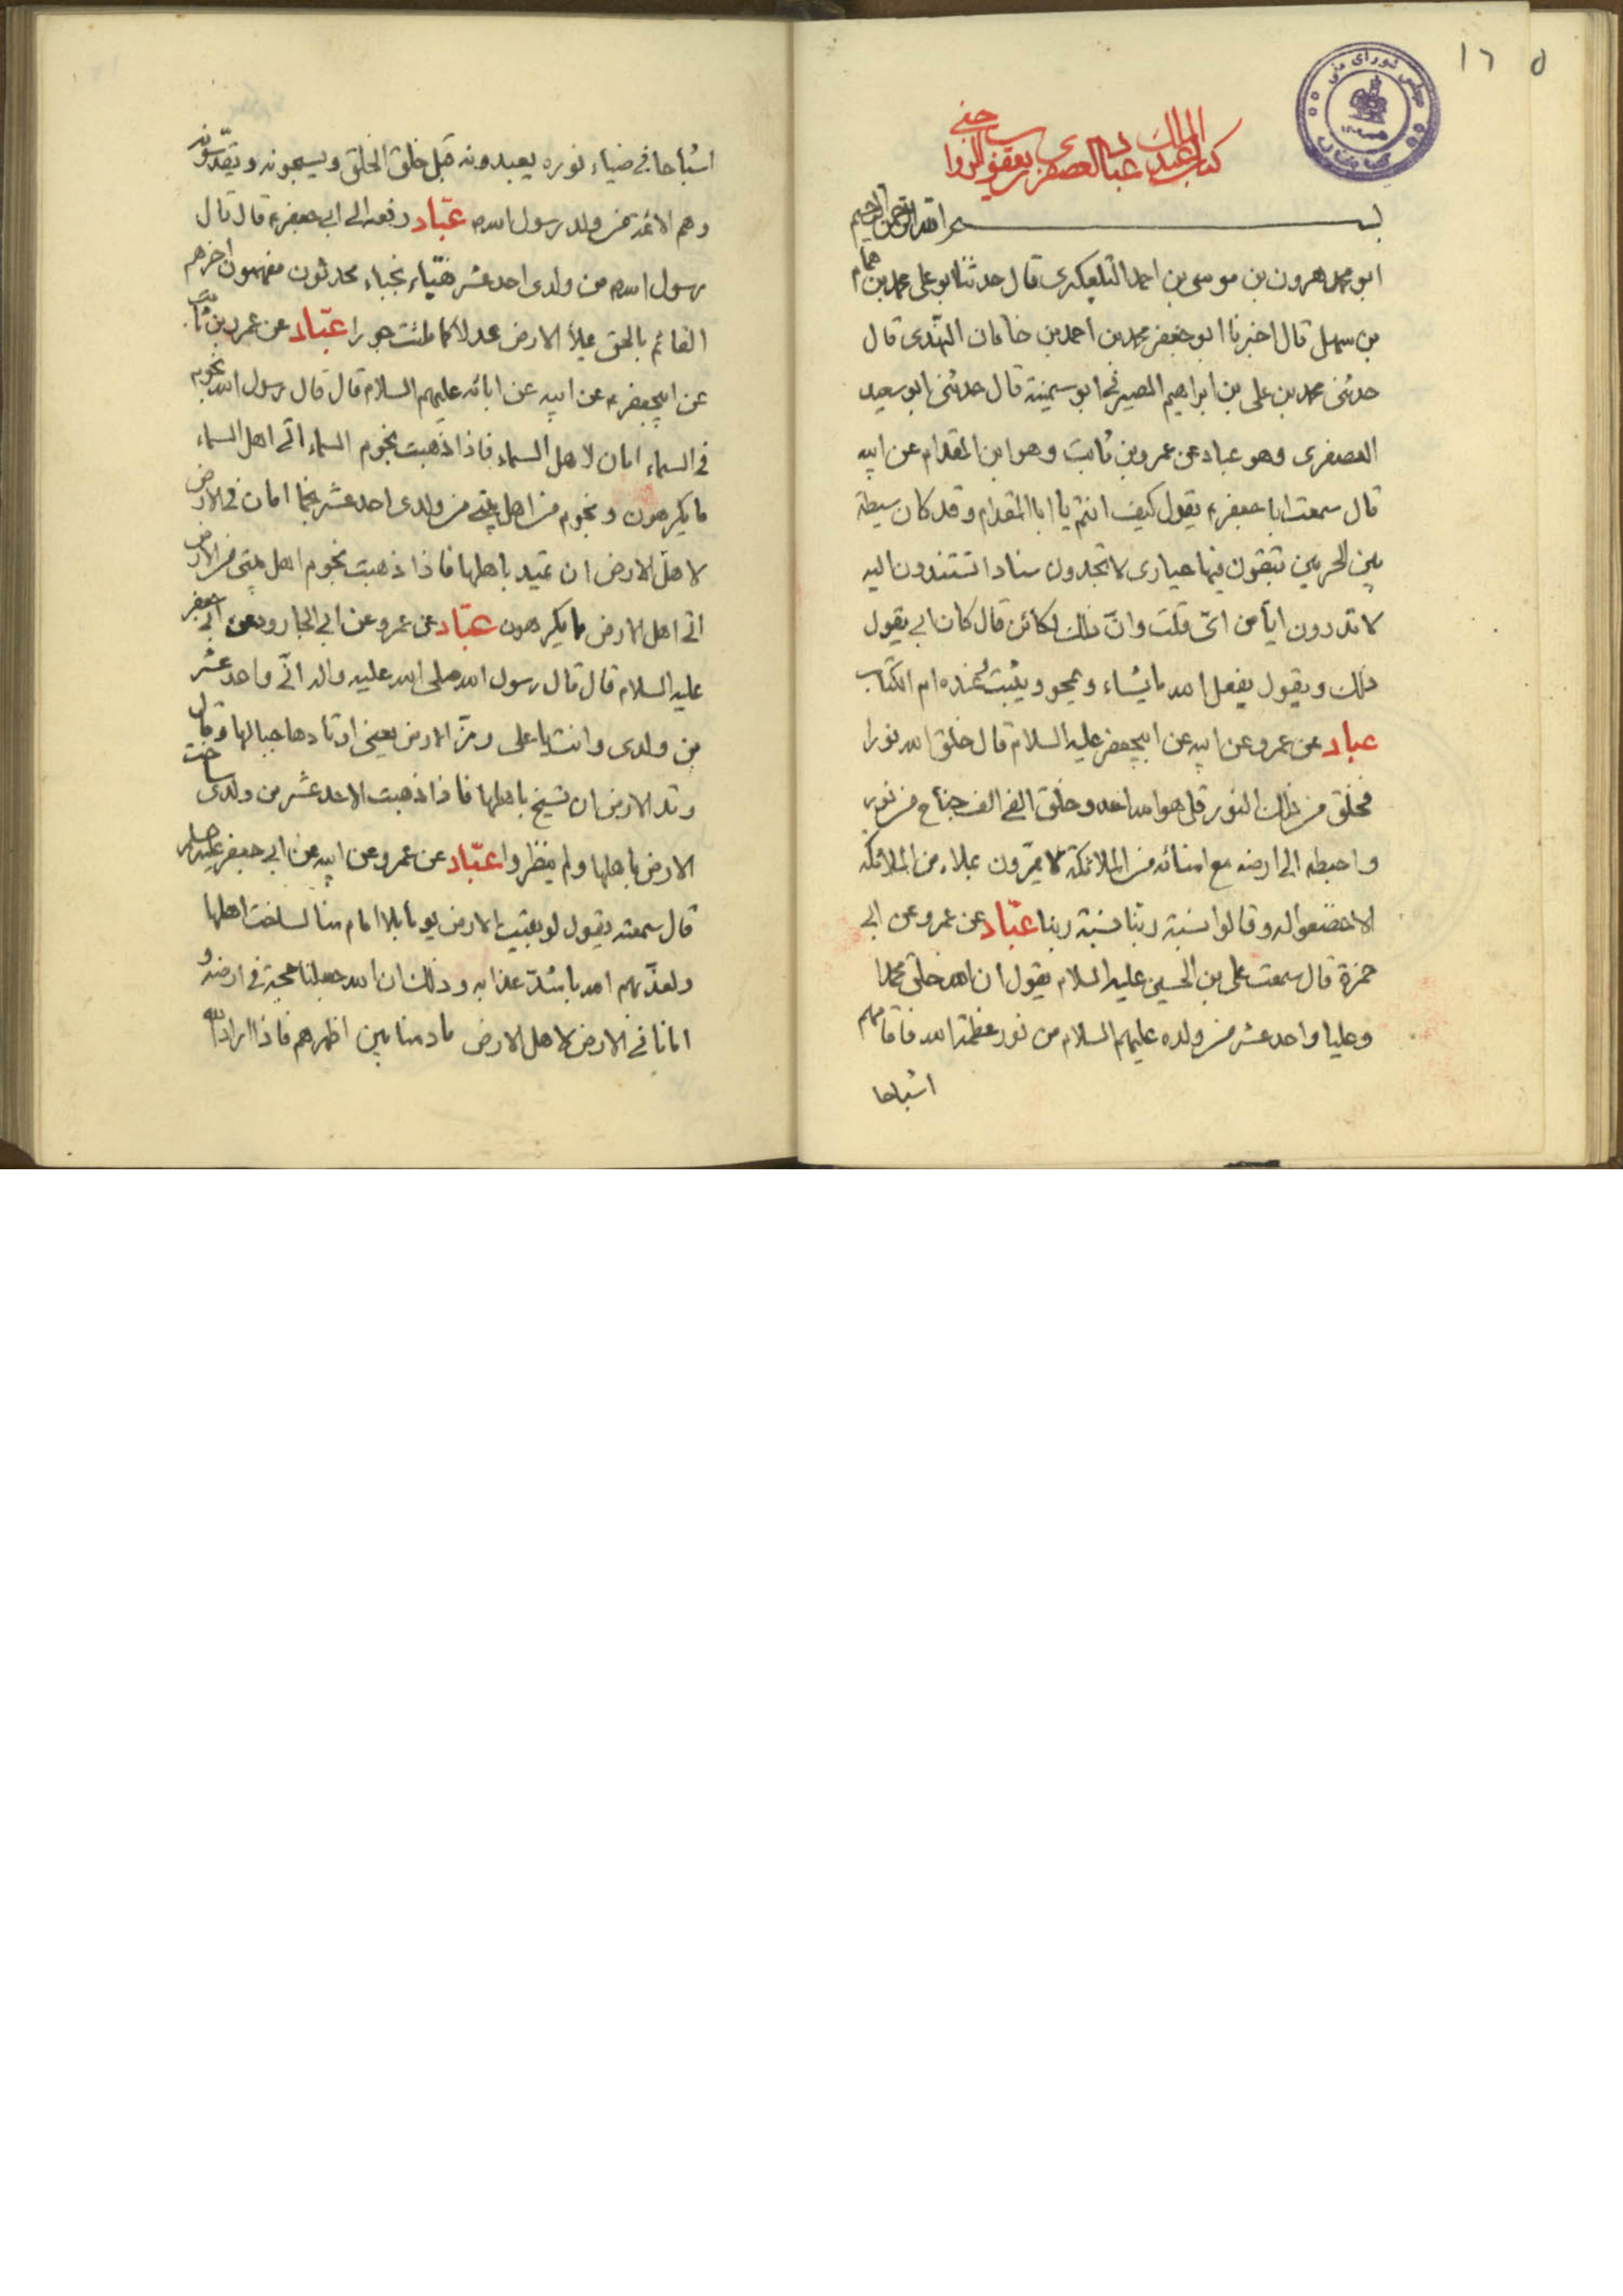 ١٦ ٥
كتاب عباد العصفري
بسم الله الرحمن الرحيم
ابو محمد هرون بن موسى بن احمد التلعكبرى قال حدثنا ابو على محمد بن همام
بن سهيل قال اخبرنا ابو جعفر محمد بن احمد بن خاقان النهدى قال
حدثنى محمد بن على بن ابراهيم الصيرفى ابو سمينة قال حدثنى ابو سعيد
العصفرى وهو عباد عن عمرو بن ثابت وهو ابن المقدام عن ابيه
قال سمعت ابا جعفر ع يقول كيف انتم يا ابا المقدام وقد كان سيطة
بين الحرمين تبقون فيها حيارى لا تجدون سنادا تستندون اليه
لا تدرون ايّا من اىّ قلت وانّ ذلك لكائن قال كان ابى يقول
ذلك ويقول يفعل الله ما يشاء ويمحو ويثبت عنده ام الكتاب
عباد عن عمرو عن ابيه عن ابيجعفر عليه السلام قال خلق الله نورا
فخلق من ذلك النور قل هو الله احد وخلق الفى الف جناح من نور
واهبطه الى ارضه مع امنائه من الملائكة لا يمرّون بملاء من الملائكة
الا خضعوا له وقالوا نسبة ربّنا نسبة ربنا عبّاد عن عمرو عن ابى
حمزة قال سمعت على بن الحسين عليه السلام يقول ان الله خلق محمدا
وعليا واحد عشر من ولده عليهم السلام من نور عظمة الله فاقامهم
اشباحا
اشباحا فى ضياء نوره يعبدونه قبل خلق الخلق ويسبحونه ويقدّسونه
وهم الائمة من ولد رسول الله ص عبّاد رفعه الى ابى جعفر ع قال قال
رسول الله ص من ولدى احد عشر نقباء نجباء محدثون مفهمون اخرهم
القائم بالحق يملأ الارض عدلا كما ملئت جورا عبّاد عن عمرو بن ثابت
عن ابيجعفر ع عن ابيه عن ابائه عليهم السلام قال قال رسول الله نجوم
فى السماء امان لاهل السماء فاذا ذهبت نجوم السماء اتى اهل السماء
ما يكرهون ونجوم من اهل بيتى من ولدى احد عشر نجما امان فى الارض
لاهل الارض ان تميد باهلها فاذا ذهبت نجوم اهل بيتى من الارض
اتى اهل الارض ما يكرهون عبّاد عن عمرو عن ابى الجارود عن ابى جعفر
عليه السلام قال قال رسول الله صلى الله عليه واله انّى واحد عشر
من ولدى وانت يا على رزّ الارض يعنى اوتادها جبالها وقال
وتد الارض ان تسيخ باهلها فاذا ذهب الاحد عشر من ولدى ساخت
الارض باهلها ولم ينظروا عبّاد عن عمرو عن ابيه عن ابى جعفر عليه السلام
قال سمعته يقول لو بقيت الارض يوما بلا امام منا لساخت اهلها
ولعذّبهم الله باشدّ عذابه وذلك ان الله جعلنا حجة فى ارضه و
امانا فى الارض لاهل الارض ما دمنا بين اظهرهم فاذا اراد الله